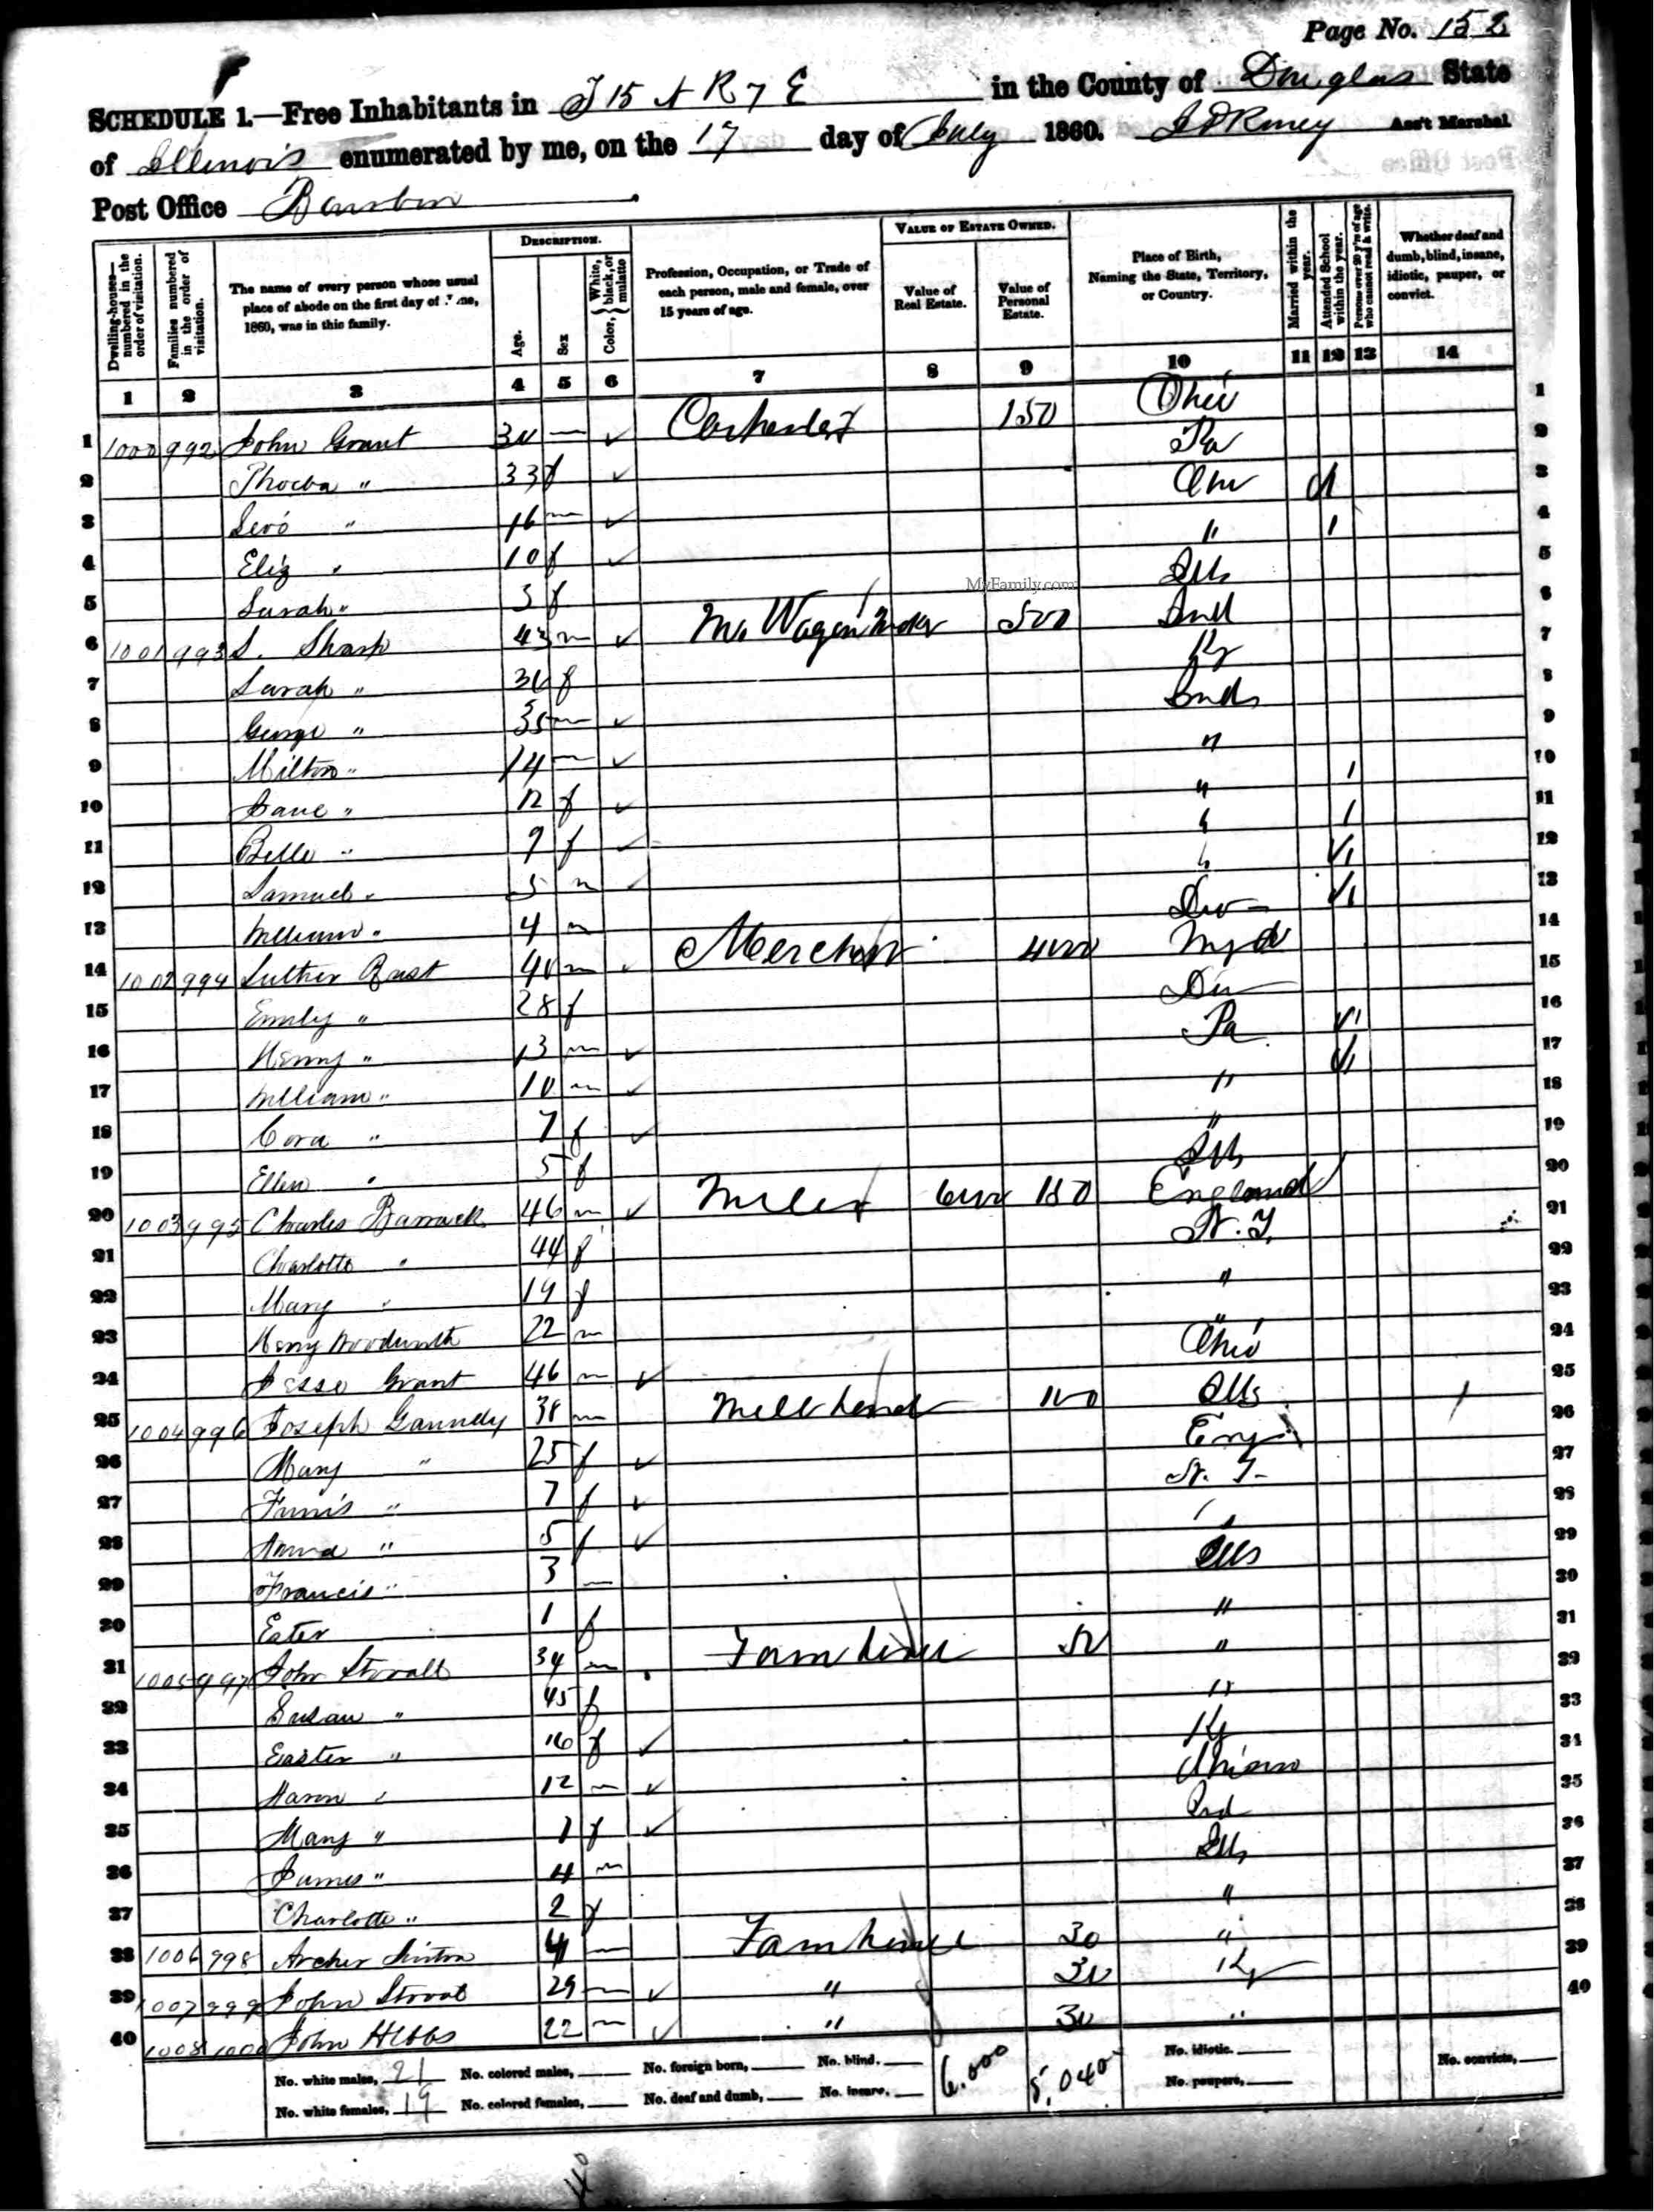 Page No. 152
SCHEDULE 1.—Free Inhabitants in T 15 N R 7 E in the County of Douglas State
of Illinois enumerated by me, on the 17 day of July 1860. Ass't Marshal
Post Office Bourbon
Dwelling-houses—numbered in the order of visitation.
Families numbered in the order of visitation.
The name of every person whose usual place of abode on the first day of June, 1860, was in this family.
DESCRIPTION.
Age.
Sex
Color, { White, black, or mulatto
Profession, Occupation, or Trade of each person, male and female, over 15 years of age.
VALUE OF ESTATE OWNED.
Value of Real Estate.
Value of Personal Estate.
Place of Birth, Naming the State, Territory, or Country.
Married within the year.
Attended School within the year.
Persons over 20 y'rs of age who cannot read & write.
Whether deaf and dumb, blind, insane, idiotic, pauper, or convict.
1 2 3 4 5 6 7 8 9 10 11 12 13 14
1 1000 992 John Grant 30 m ✓ 150 Ohio 1
2 Phoeba " 33 f ✓ Pa 2
3 16 m ✓ 3
4 Eliz " 10 f ✓ " 1 4
5 Sarah " 3 f Ills 5
6 1001 993 S. Sharp 43 m ✓ Wagon Maker 500 Ind 6
7 Sarah " f Ky 7
8 George " m ✓ Inds 8
9 Milton " 14 m ✓ " 9
10 Jane " 12 f ✓ " 1 10
11 Belle " 9 f ✓ " 1 11
12 Samuel " 5 m ✓ " 12
13 William " 4 m 13
14 1002 994 Luther 40 m Merchant 4000 14
15 Emily " 28 f 15
16 Henry " 13 m ✓ Pa 16
17 William " 10 m ✓ " 17
18 Cora " 7 f ✓ " 18
19 Ellen " 5 f Ills 19
20 1003 995 Charles Barrack 46 m ✓ Miller 6000 150 England 20
21 Charlotte " 44 f N.Y. 21
22 Mary " 19 f " 22
23 Henry Woodworth 22 m " 23
24 Jesse Grant 46 m ✓ Ohio 24
25 1004 996 Joseph 38 m Mill hand 100 Ills 25
26 Mary " 25 f ✓ Eng 26
27 " 7 f ✓ N.Y. 27
28 " 5 f ✓ " 28
29 Francis " 3 Ills 29
30 Ester 1 f " 30
31 1005 997 John Stovall 34 m Farm hand 50 " 31
32 Susan " 45 f " 32
33 Easter " 16 f ✓ Ky 33
34 " 12 m ✓ 34
35 Mary " f ✓ Ind 35
36 James " 4 m Ills 36
37 Charlotte " 2 f " 37
38 1006 998 Archer m Farm hand 30 " 38
39 1007 999 John 29 m ✓ " 30 Ky 39
40 1008 1000 John Hibbs 22 m ✓ " 30 " 40
No. white males, 21 No. colored males, No. foreign born, No. blind, 6.000 5,040 No. idiotic. No. convicts,
No. white females, 19 No. colored females, No. deaf and dumb, No. insane, No. paupers,
40
MyFamily.com